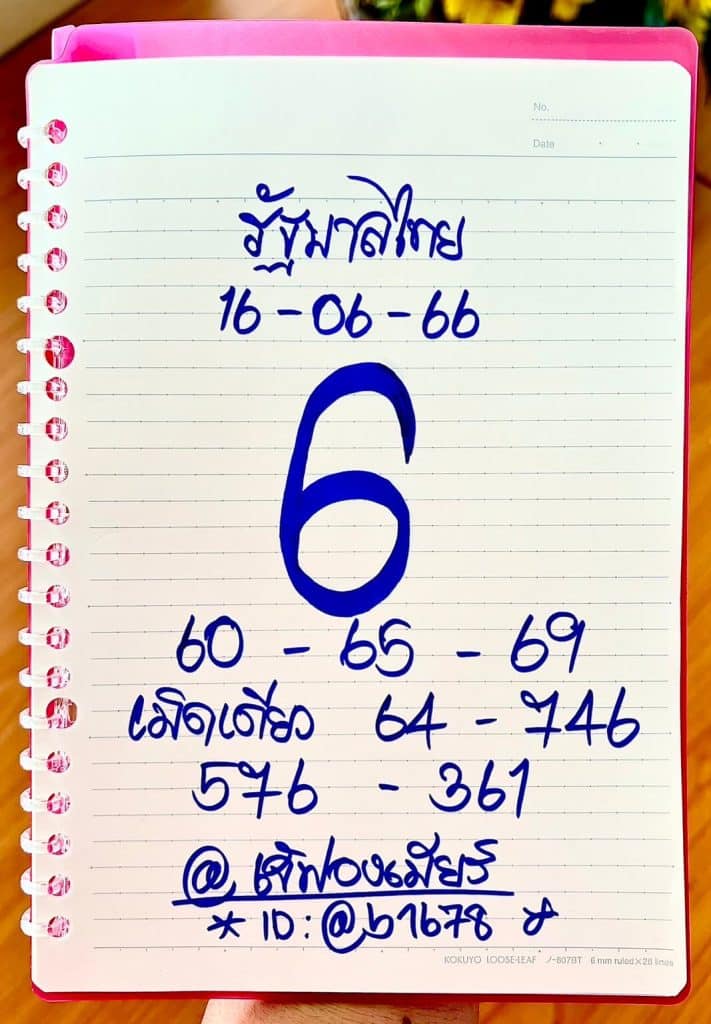 No.
Date
รัฐบาลไทย
16-06-66
6
60 - 65 - 69
เม็ดเดียว 64 - 746
576 - 361
@ เจ๊ฟองเบียร์
* ID:@b1678
KOKUYO LOOSE-LEAF ノ-807BT 6 mm ruled×28 lines